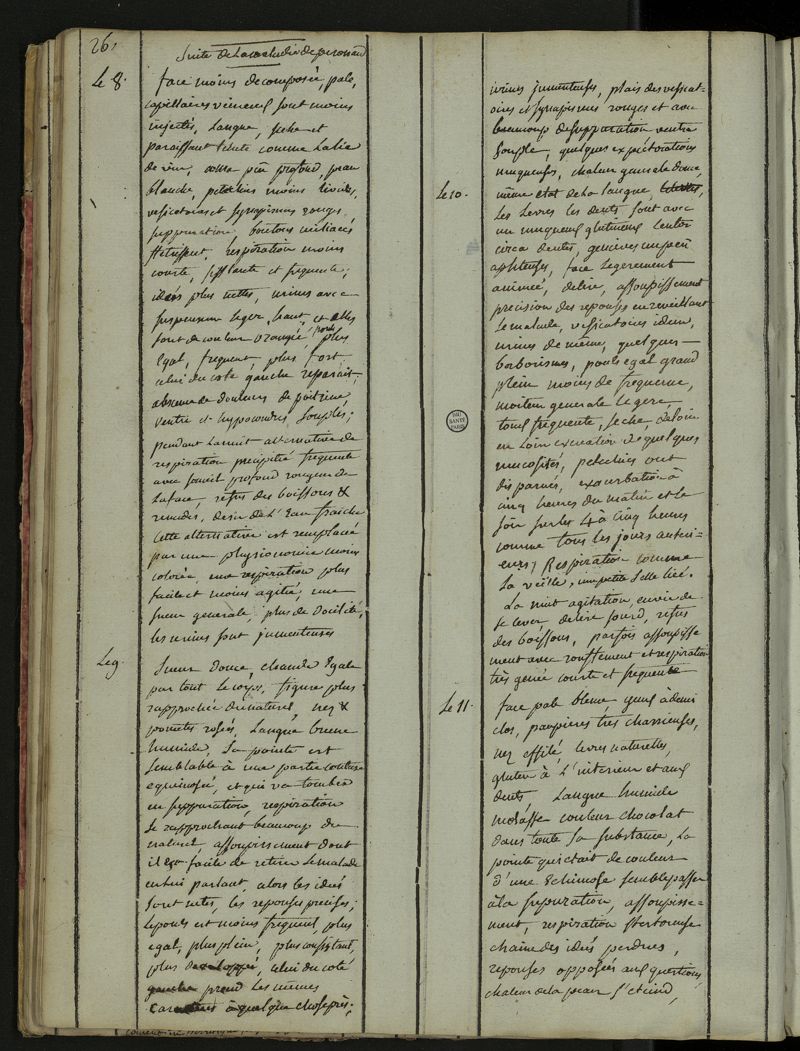 26.
Suite de la maladie de
Le 8.
face moins decomposée, pale,
capillaires veineux sont moins
injectés, Langue, seche et
paraissant teinte comme La lie
de vin, un peu profond, peau
blanche, petechies moins livides,
vesicatoires et synapismes rouges,
suppuration, boutons miliaires
flétrissent, respiration moins
courte, sifflante et frequente,
idées plus nettes, urines avec
suspensum leger, haut, et elles
sont de couleur orangée, pouls plus
Egal, frequent plus fort,
celui du coté gauche reparait,
absence de douleurs de poitrine,
ventre et hypocondres souples;
pendant La nuit alternative de
respiration precipitée frequente
avec sommeil profond rougeur de
La face, refus des boissons &
remedes, desir de L'Eau fraiche
cette alternative est remplacée
par une physionomie moins
colorée, une respiration plus
facile et moins agitée, une
sueur generale, plus de docilité,
les urines sont jumenteuses
Le 9.
Sueur douce, chaude Egale
par tout Le corps, figure plus
rapprochée du naturel, nez &
pomettes rosés, Langue brune
humide, Sa pointe est
semblable à une partie contuse
equimosée, et qui va tomber
en suppuration, respiration
se rapprochant beaucoup du
naturel, assoupissement dont
il est facile de retirer Le malade
en Lui parlant, alors les idées
sont nettes, les reponses precises;
Le pouls est moins frequent, plus
egal, plus plein, plus consistant,
plus developpé, celui du coté
gauche prend Les mêmes
caracteres à quelque chose près;
urines jumenteuses, plaies des vesicat-
oires et synapismes rouges et avec
beaucoup de suppuration ventre
souple, quelques expectorations
muqueuses, chaleur generale douce,
Le 10.
même état de La langue,
Les Levres les dents sont avec
un muqueux glutineux Lentor
circa dentes, gencives un peu
aphteuses, face Legerement
animée, delire, assoupissement
precision des reponses en reveillant
Le malade, vesicatoires idem,
urines de même, quelques
borborismes, pouls egal grand
plein moins de frequence,
moiteur generale Legere,
toux frequente, seche, de loin
en Loin excreation de quelques
mucosités, petechies ont
disparues, exacerbation à
cinq heures du matin et le
soir sur les 4 à cinq heures
comme tous les jours anteri=
eurs, Respiration comme
La veille, une petite selle liée.
La nuit agitation, envie de
se lever, delire sourd, refus
des boissons, parfois assoupisse
ment avec ronflement et respiration
très genée courte et frequente
Le 11.
face pale bleme, yeux à demi
clos, paupieres très chassieuses,
nez effilé, levres naturelles,
gluten à L'interieur et aux
dents Langue humide
molasse couleur chocolat
dans toute sa substance, La
pointe qui etait de couleur
d'une Echimose semble passer
à la suppuration, assoupisse=
ment, respiration stertoreuse
chaine des idées perdues,
reponses opposées aux questions,
chaleur de la peau s'eteind,
BIU
SANTÉ
PARIS